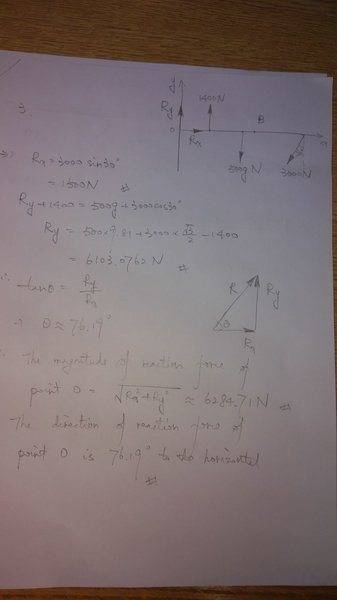 y
1400N
3.
Ry
B
0
Rx
x
30°
500gN
3000N
Rx = 3000 sin30°
= 1500N
Ry + 1400 = 500g + 3000cos30°
Ry = 500×9.81 + 3000 × √3/2 - 1400
= 6103.0762N
∴ tanθ = Ry/Rx
R
Ry
⇒ θ ≈ 76.19°
θ
Rx
∴ The magnitude of reaction force of
point O = √Rx²+Ry² ≈ 6284.71 N
The direction of reaction force of
point O is 76.19° to the horizontal